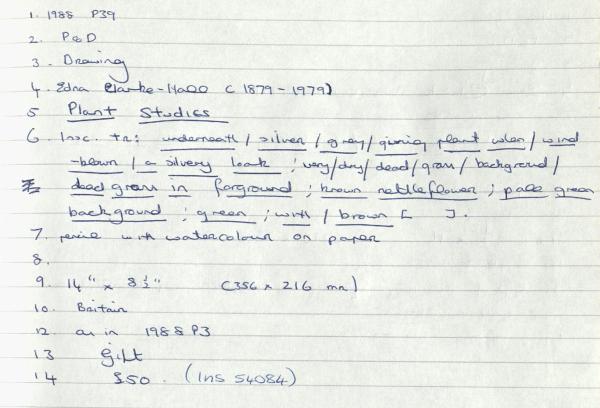 1. 1988 P39
2. P&D
3. Drawing
4. Edna Clarke-Hall (1879-1979)
5 Plant Studies
6. Insc. tr: underneath / silver / grey / giving plant when / wind
-blown / a silvery look ; very/dry/dead/grass/background/
dead grass in forground ; brown nettleflower ; pale green
background ; green ; with / brown [ ].
7. pencil with watercolour on paper
8.
9. 14" x 8½" (356 x 216 mm)
10. Britain
12. as in 1988 P3
13 gift
14 £50. (Ins 54084)